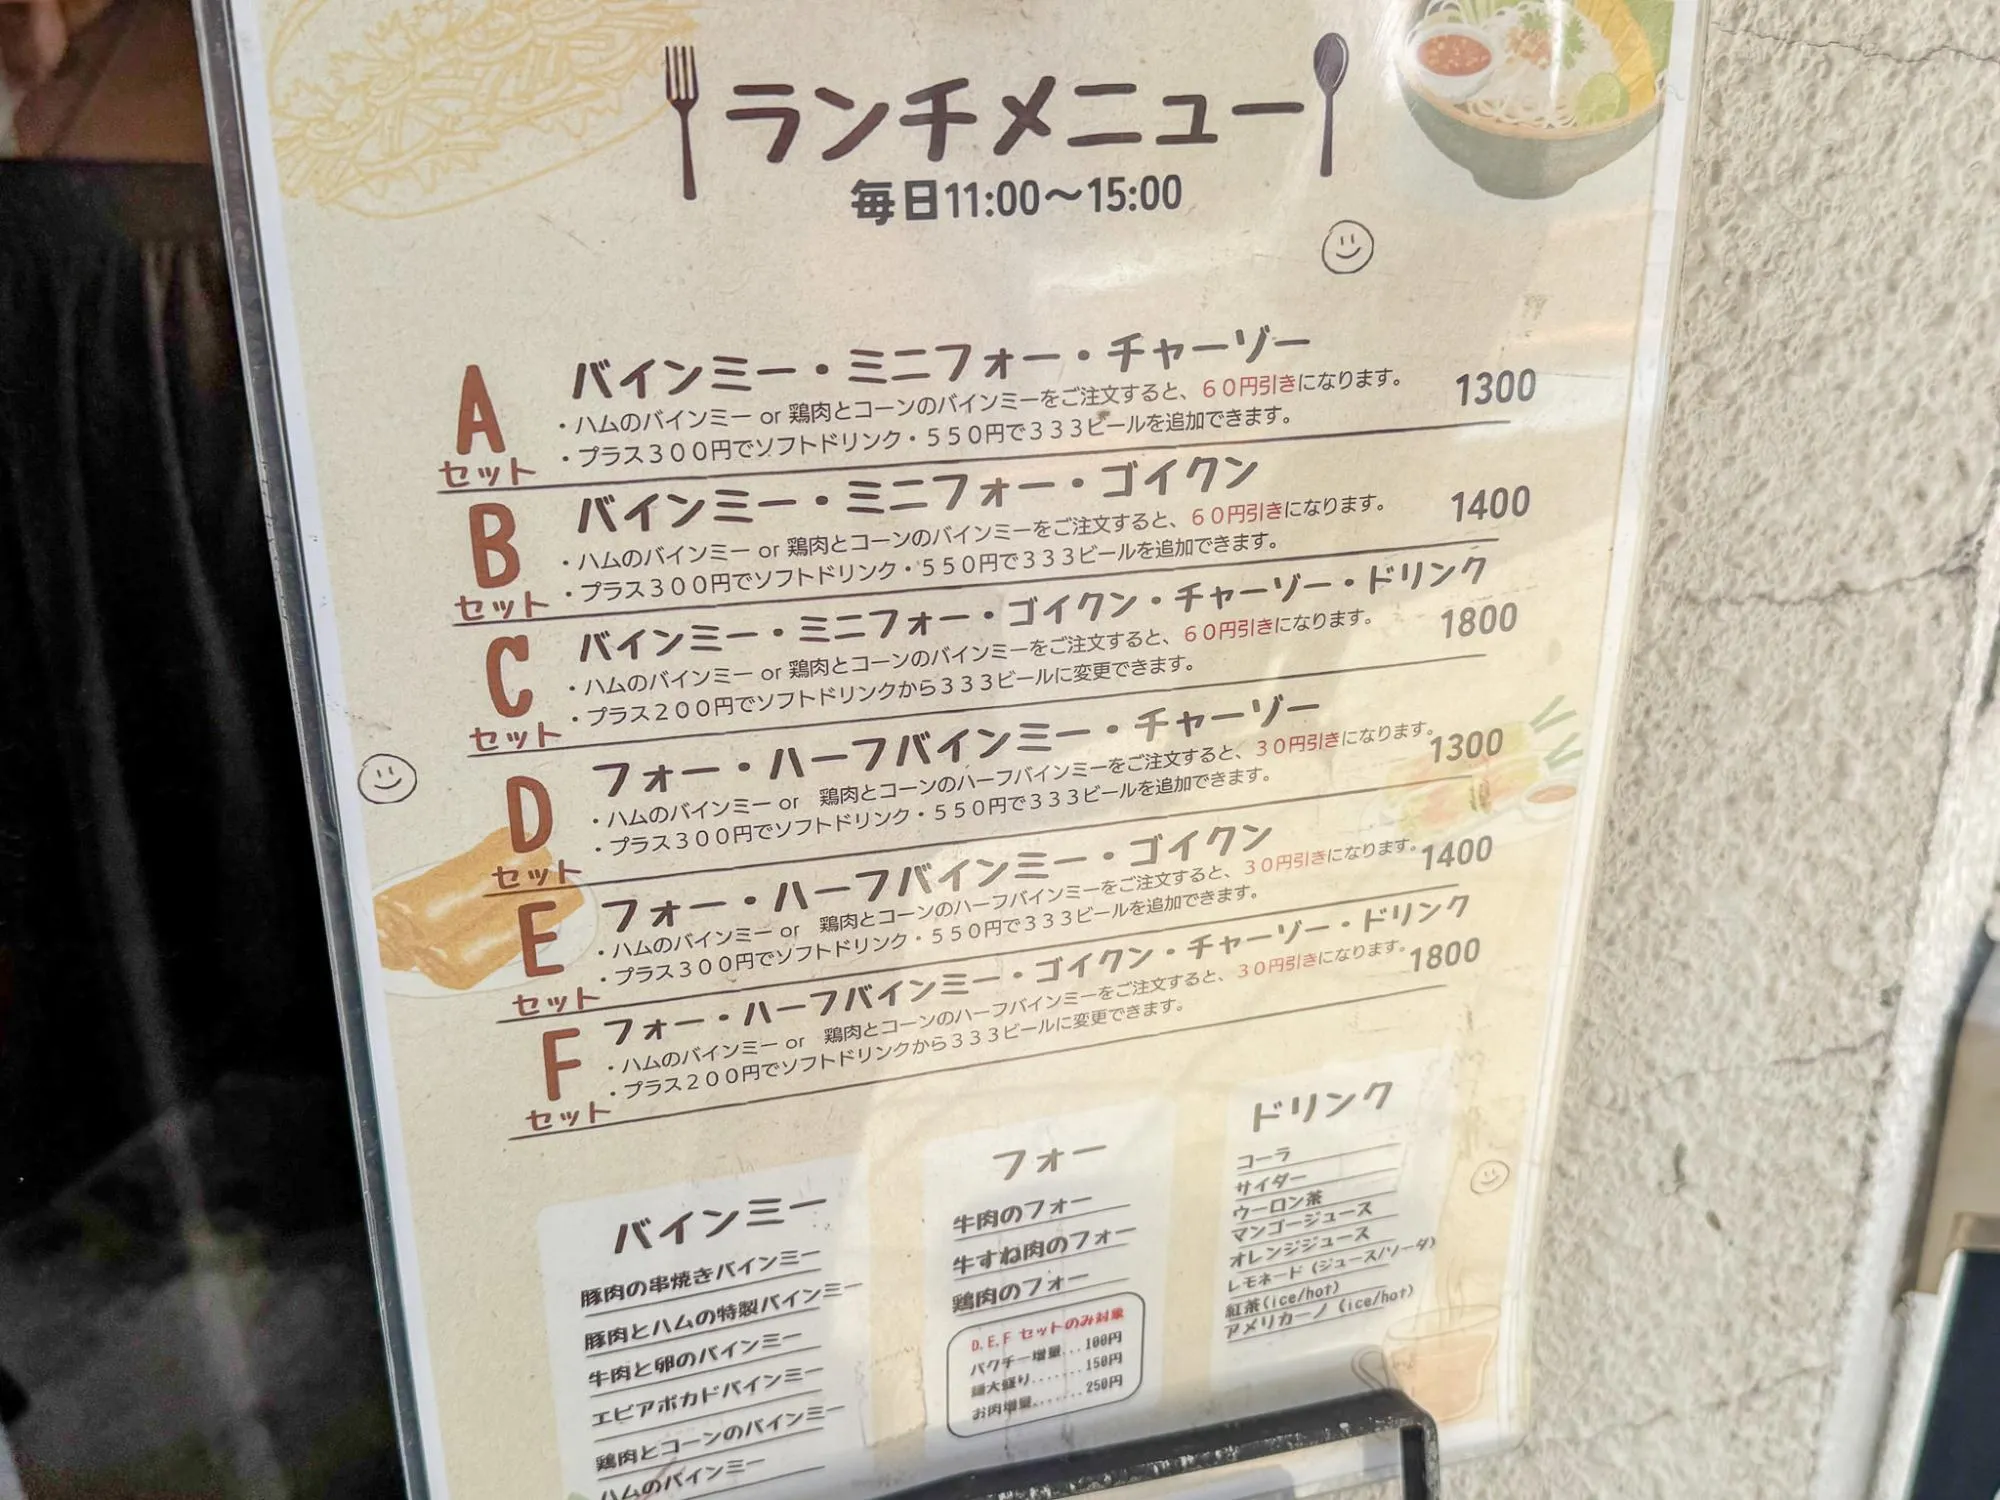 ランチメニュー
毎日11:00～15:00
A
セット
バインミー・ミニフォー・チャーゾー
・ハムのバインミー or 鶏肉とコーンのバインミーをご注文すると、６０円引きになります。
1300
・プラス３００円でソフトドリンク・５５０円で３３３ビールを追加できます。
B
セット
バインミー・ミニフォー・ゴイクン
・ハムのバインミー or 鶏肉とコーンのバインミーをご注文すると、６０円引きになります。
1400
・プラス３００円でソフトドリンク・５５０円で３３３ビールを追加できます。
C
セット
バインミー・ミニフォー・ゴイクン・チャーゾー・ドリンク
・ハムのバインミー or 鶏肉とコーンのバインミーをご注文すると、６０円引きになります。
1800
・プラス２００円でソフトドリンクから３３３ビールに変更できます。
D
セット
フォー・ハーフバインミー・チャーゾー
・ハムのバインミー or　鶏肉とコーンのハーフバインミーをご注文すると、３０円引きになります。
1300
・プラス３００円でソフトドリンク・５５０円で３３３ビールを追加できます。
E
セット
フォー・ハーフバインミー・ゴイクン
・ハムのバインミー or　鶏肉とコーンのハーフバインミーをご注文すると、３０円引きになります。
1400
・プラス３００円でソフトドリンク・５５０円で３３３ビールを追加できます。
F
セット
フォー・ハーフバインミー・ゴイクン・チャーゾー・ドリンク
・ハムのバインミー or　鶏肉とコーンのハーフバインミーをご注文すると、３０円引きになります。
1800
・プラス２００円でソフトドリンクから３３３ビールに変更できます。
バインミー
豚肉の串焼きバインミー
豚肉とハムの特製バインミー
牛肉と卵のバインミー
エビアボカドバインミー
鶏肉とコーンのバインミー
ハムのバインミー
フォー
牛肉のフォー
牛すね肉のフォー
鶏肉のフォー
D.E.F セットのみ対象
パクチー増量...100円
麺大盛り.......150円
お肉増量.......250円
ドリンク
コーラ
サイダー
ウーロン茶
マンゴージュース
オレンジジュース
レモネード（ジュース/ソーダ）
紅茶(ice/hot)
アメリカーノ（ice/hot）